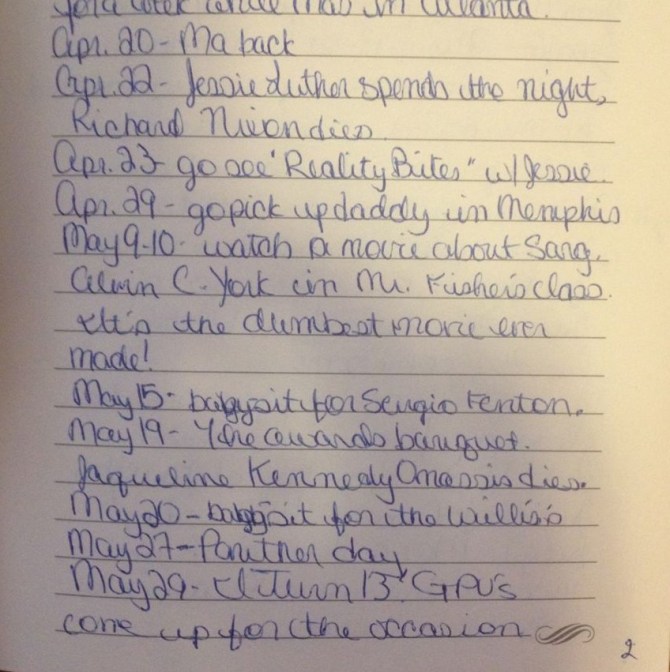 while Ma's in Atlanta.
Apr. 20 - Ma back
Apr. 22 - Jessie Luther spends the night,
Richard Nixon dies
Apr. 23 - go see "Reality Bites" w/ Jessie.
Apr. 29 - go pick up daddy in Memphis
May 9-10 - watch a movie about Sang.
Alvin C. York in Mr. Fisher's class.
It's the dumbest movie ever
made!
May 15 - babysit for Sergio Fenton.
May 19 - awards banquet.
Jaqueline Kennedy Onassis dies.
May 20 - babysit for the Willis's
May 27 - Panther day
May 29 - I Turn 13 GPV's
come up for the occasion
2